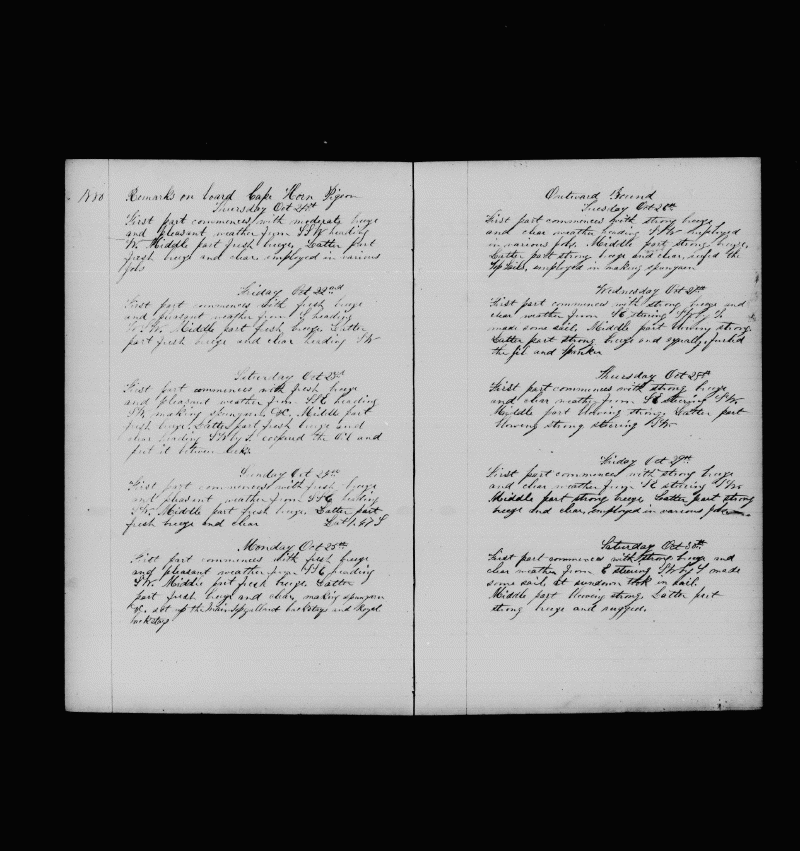 1880 Remarks on board Cape Horn Pigeon
Thursday Oct 21st
First part commences with moderate breeze
and pleasant weather from SSW heading
W. Middle part fresh breeze, Latter part
fresh breeze and clear, employed in various
jobs
Friday Oct 22nd
First part commences with fresh breeze
and pleasant weather from S heading
Middle part fresh breeze. Latter
part fresh breeze and clear heading SW
Saturday Oct 23d
First part commences with fresh breeze
and pleasant weather from SSE heading
SW making Spunyarn &c. Middle part
fresh breeze. Latter part fresh breeze and
clear heading SW by S. coopered the Oil and
put it between decks
Sunday Oct 24th
First part commences with fresh breeze
and pleasant weather from SSE heading
SW. Middle part fresh breeze. Latter part
fresh breeze and clear Lat 1.47 S
Monday Oct 25th
First part commences with fresh breeze
and pleasant weather from SSE heading
SW. Middle part fresh breeze. Latter
part fresh breeze and clear, making spunyarn
&c. set up the Main topgallant backstays and Royal
backstays
Outward Bound
Tuesday Oct 26th
First part commences with strong breeze
and clear weather heading SSW employed
in various jobs. Middle part strong breeze,
Latter part strong breeze and clear, reefed the
Top sails, employed in making spunyarn
Wednesday Oct 27th
First part commences with strong breeze and
clear weather from SE steering SW by S.
made some sail. Middle part blowing strong.
Latter part strong breeze and squally, furled
the jib and spanker
Thursday Oct 28th
First part commences with strong breeze
and clear weather from SE steering SSW
Middle part blowing strong. Latter part
blowing strong steering SSW
Friday Oct 29th
First part commences with strong breeze
and clear weather from SE steering SSW
Middle part strong breeze. Latter part strong
breeze and clear, employed in various jobs
Saturday Oct 30th
First part commences with strong breeze and
clear weather from E steering SW by S made
some sail. at sundown took in sail.
Middle part blowing strong. Latter part
strong breeze and rugged.